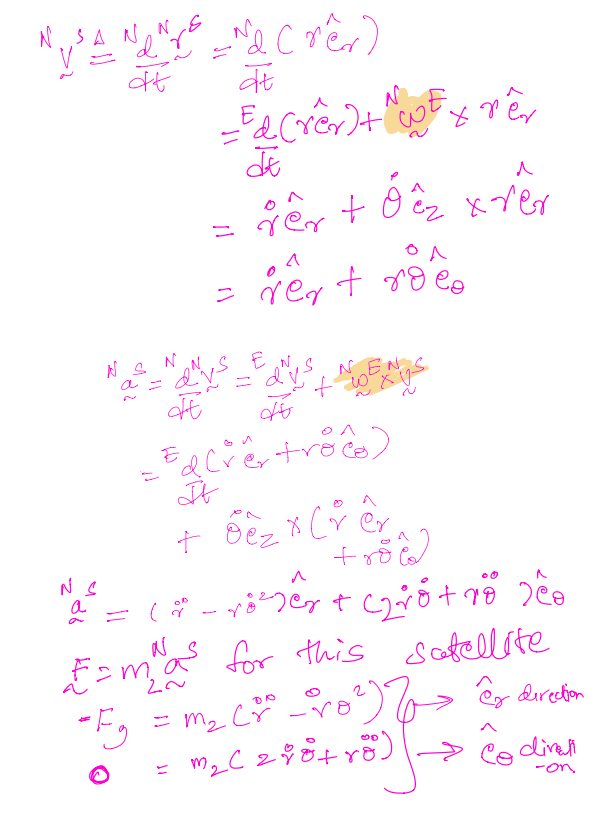 ᴺv̰ˢ ≜ ᴺd/dt ᴺr̰ˢ = ᴺd/dt (r ê_r)
= ᴱd/dt (r ê_r) + ᴺω̰ᴱ × r ê_r
= ṙ ê_r + θ̇ ê_z × r ê_r
= ṙ ê_r + r θ̇ ê_θ
ᴺa̰ˢ = ᴺd/dt ᴺv̰ˢ = ᴱd/dt ᴺv̰ˢ + ᴺω̰ᴱ × ᴺv̰ˢ
= ᴱd/dt (ṙ ê_r + r θ̇ ê_θ)
+ θ̇ ê_z × (ṙ ê_r
+ r θ̇ ê_θ)
ᴺa̰ˢ = (r̈ - r θ̇²) ê_r + (2 ṙ θ̇ + r θ̈) ê_θ
F̰ = m₂ ᴺa̰ˢ for this satellite
-F_g = m₂ (r̈ - ṙ θ²) } → ê_r direction
0 = m₂ (2 ṙ θ̇ + r θ̈) } → ê_θ directi
-on.